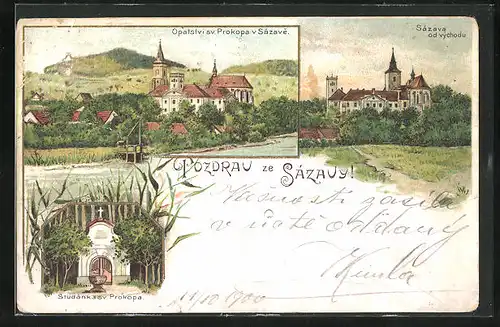 Opatství sv. Prokopa v Sázavě.
Sázava
od východu
POZDRAV ze SÁZAVY!
Studánka sv. Prokopa.
v úctě oddaný
11/10 1900